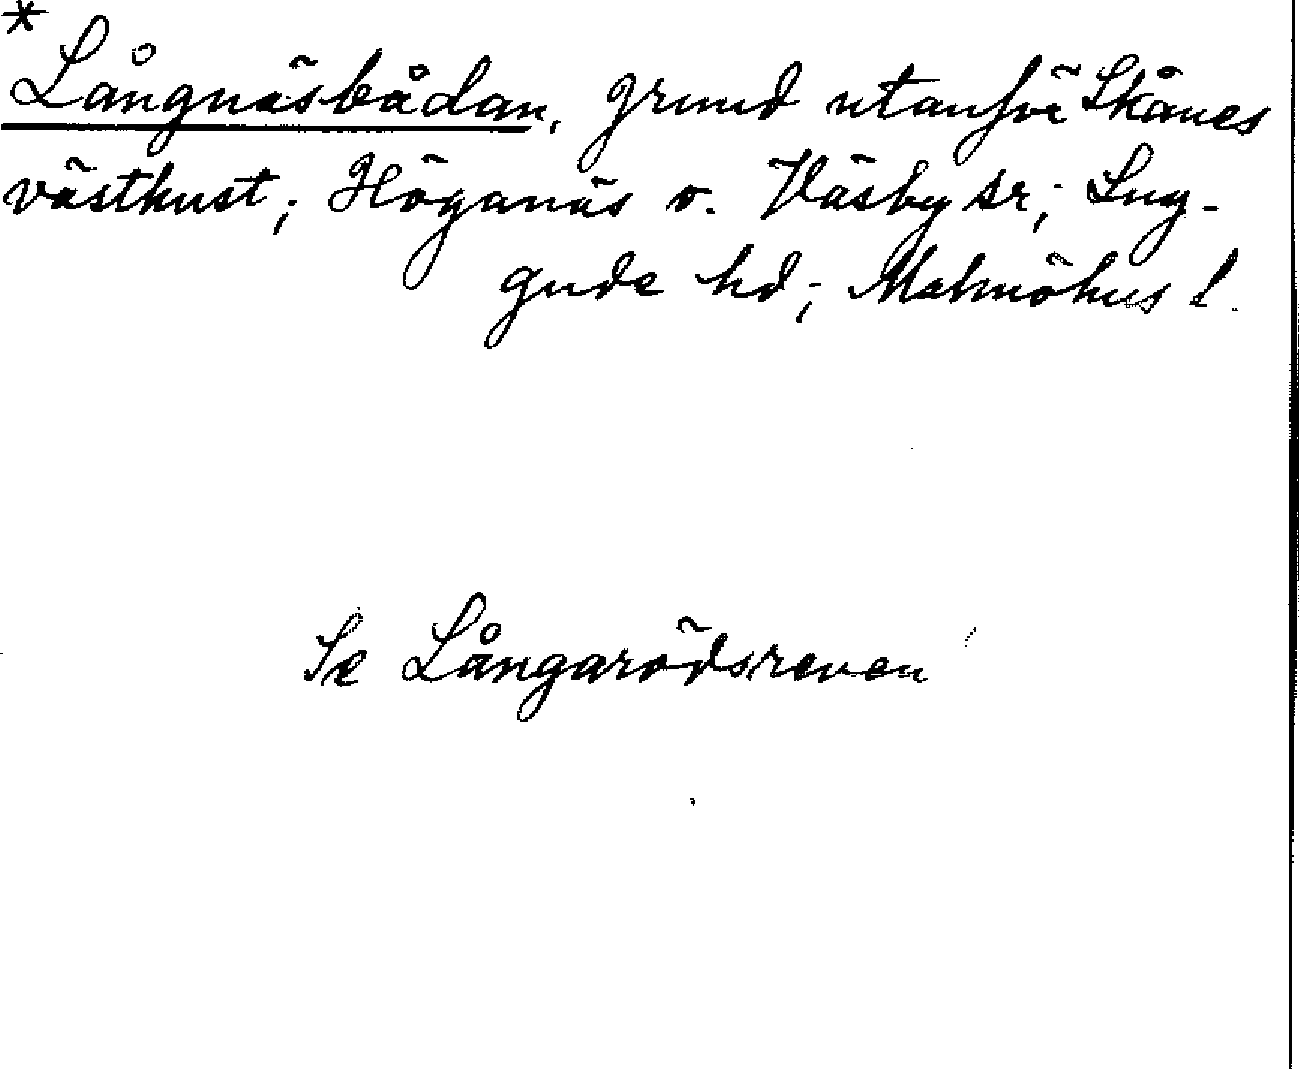 *
Långnäsbådan, grund utanför Skånes
västkust; Höganäs o. Väsby sr; Lug-
gude hd; Malmöhus l.
Se Långarödsreven